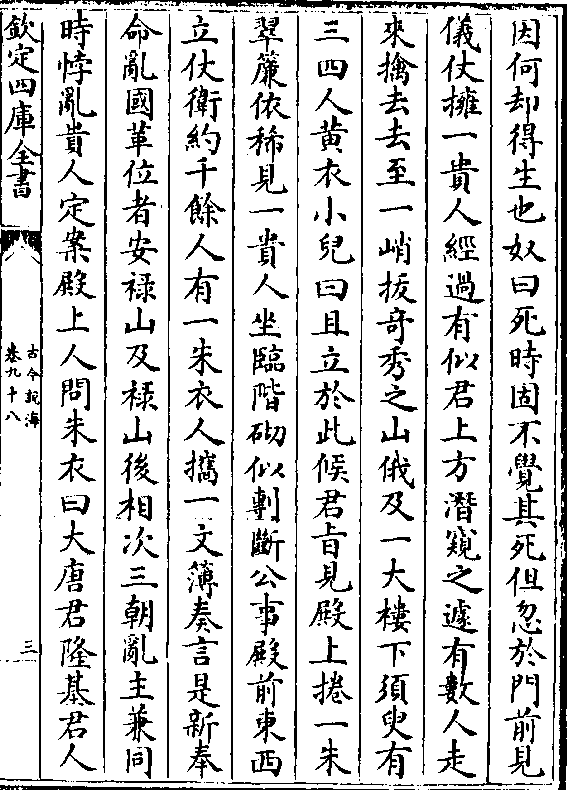 因何却得生也奴曰死時固不覺其死但忽於門前見
儀仗擁一貴人經過有似君上方潛窺之遽有數人走
來擒去去至一峭拔奇秀之山俄及一大樓下須臾有
三四人黄衣小兒曰且立於此候君旨見殿上捲一朱
翠簾依稀見一貴人坐臨階砌似剸斷公事殿前東西
立仗衛約千餘人有一朱衣人攜一文簿奏言是新奉
命亂國革位者安祿山及祿山後相次三朝亂主兼同
時悖亂貴人定案殿上人問朱衣曰大唐君隆基君人
欽定四庫全書
古今說海
卷九十八
三